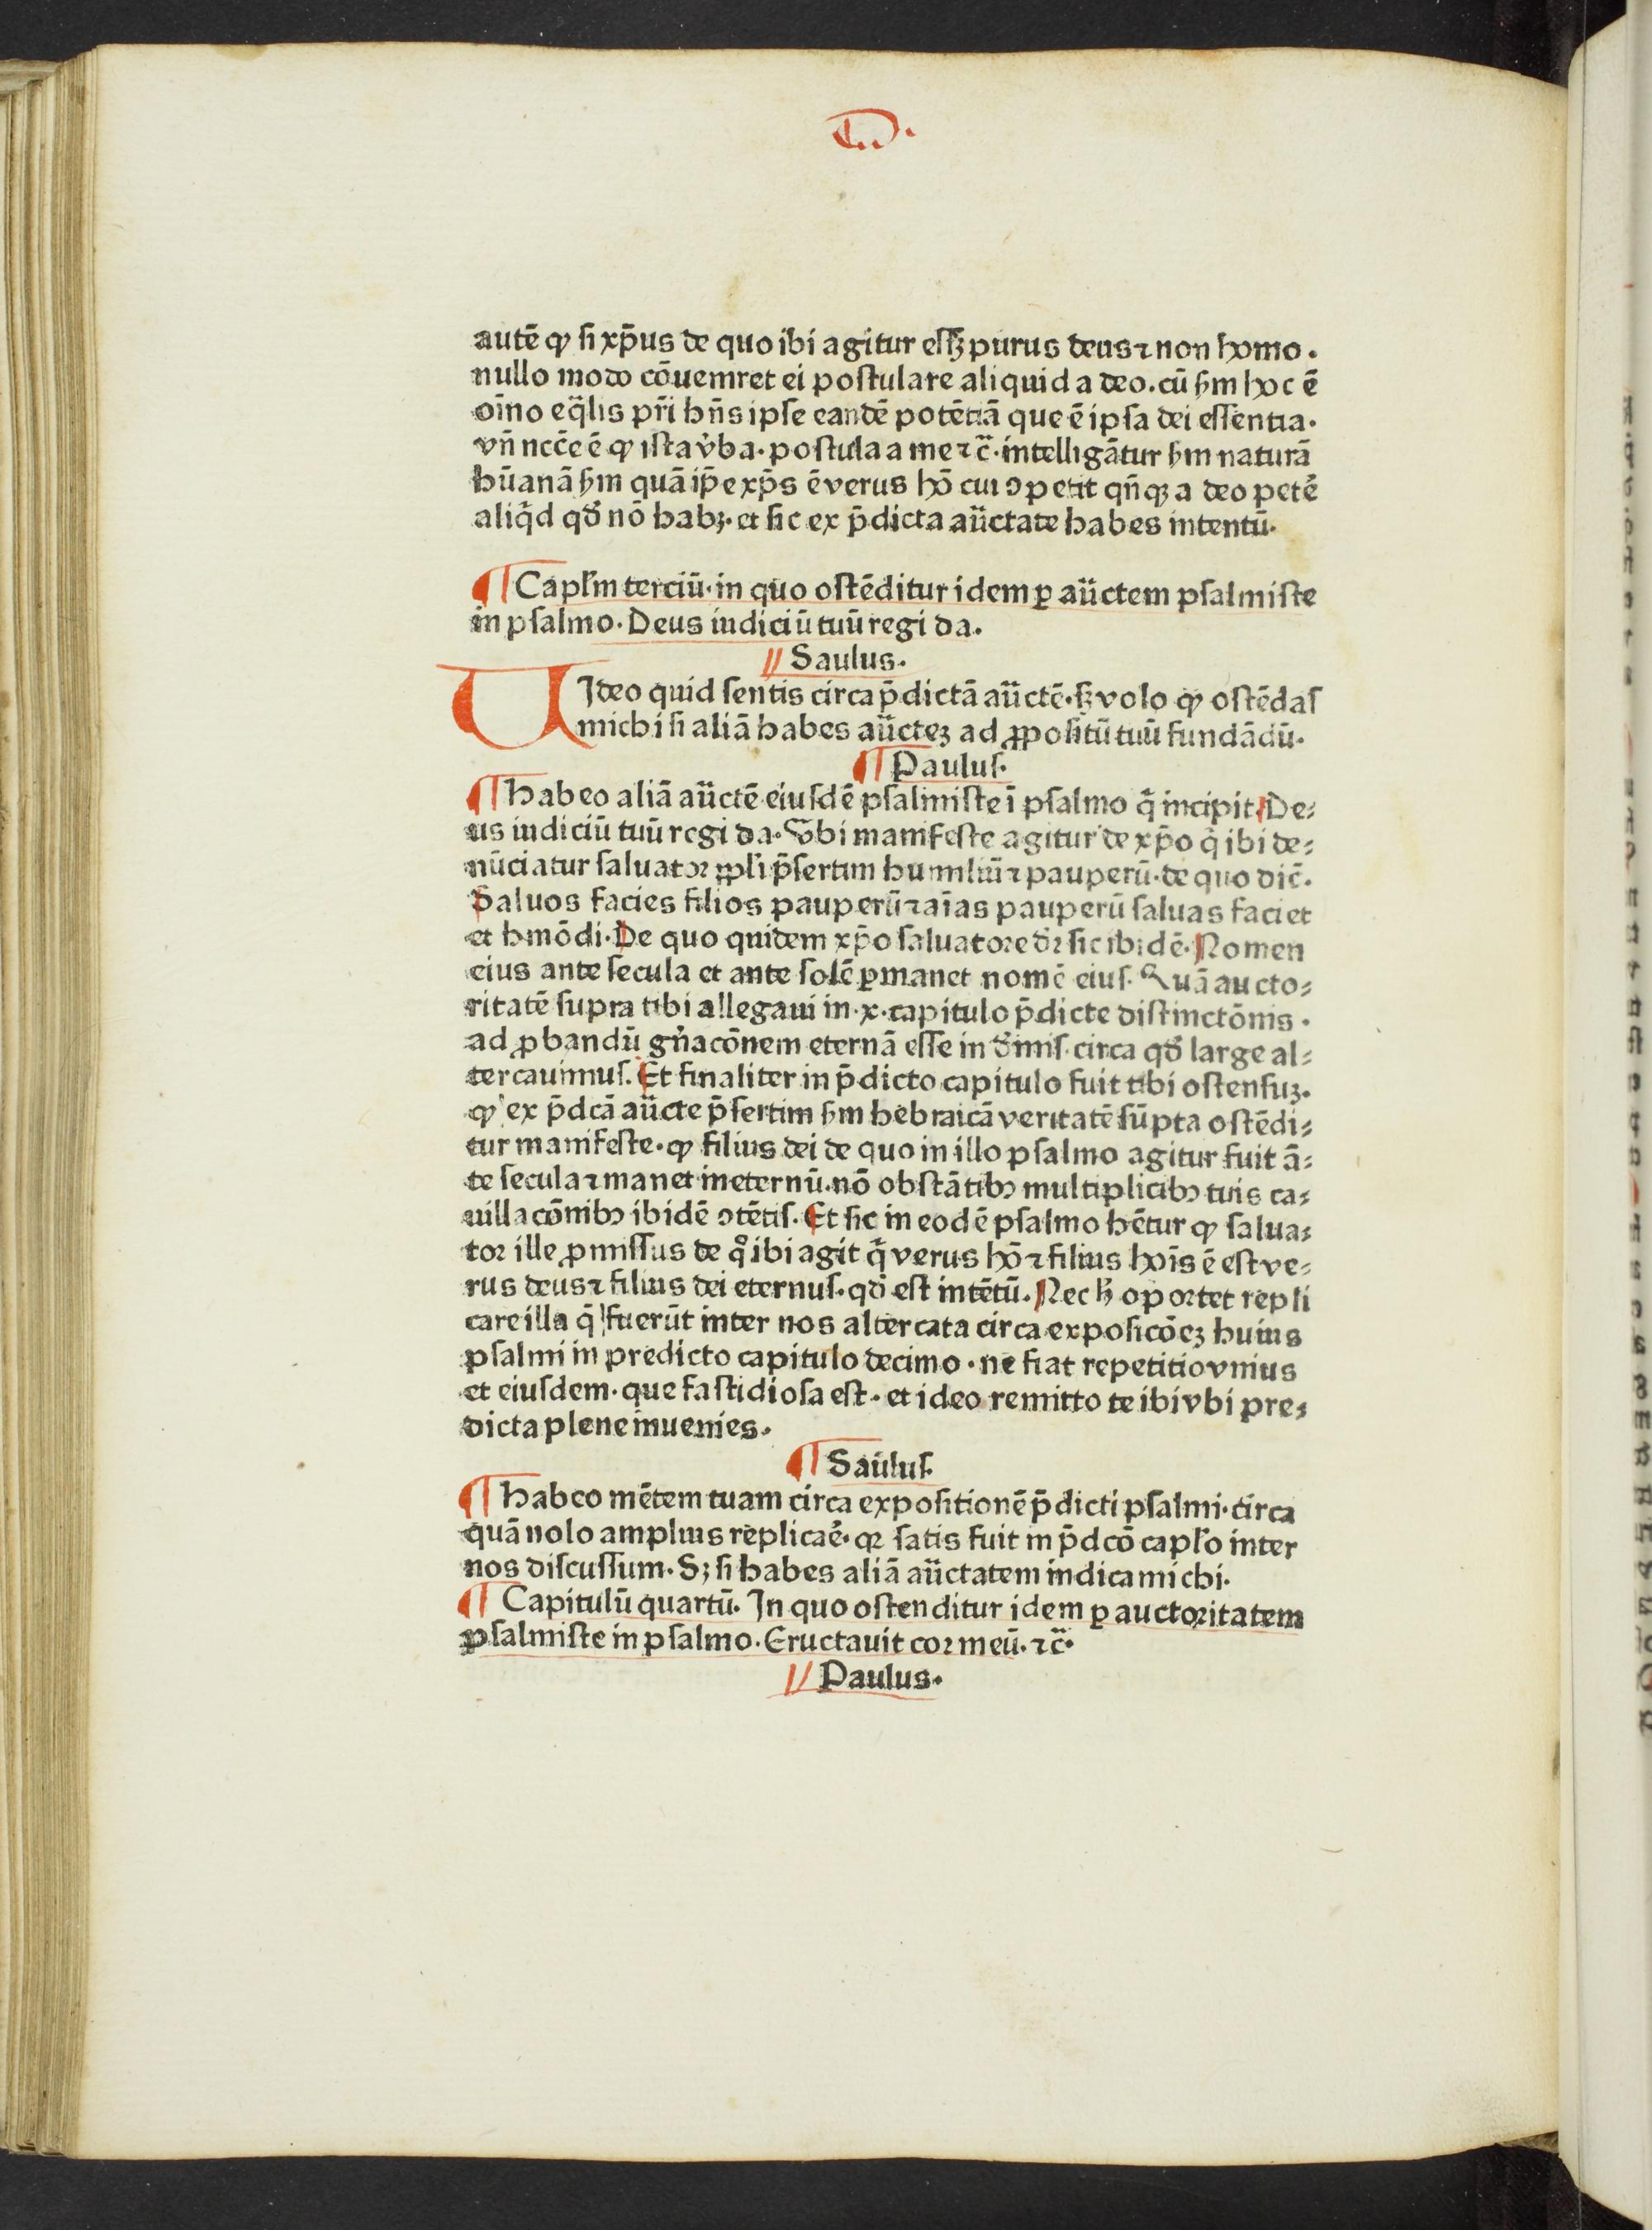 autē ꝙ si xp̄us de quo ibi agitur essꝫ purus deus ⁊ non homo.
nullo modo cōueniret ei postulare aliquid a deo. cū ẜm hoc ē
oīno eq̄lis pr̄i hn̄s ipse eandē potētiā que ē ipsa dei essentia.
vn̄ necc̄e ē ꝙ ista v̓ba. postula a me ⁊c̄. intelligātur ẜm naturā
hūanā ẜm quā ip̄e xp̄s ē verus hō cui ↄpetit qn̄qꝫ a deo petē
aliq̄d qđ nō habꝫ. et sic ex p̄dicta auc̄tate habes intentū.
¶ Capl̄m terciū. in quo ostēditur idem ꝑ auc̄tem psalmiste
in psalmo. Deus iudiciū tuū regi da.
// Saulus.
VIdeo quid sentis circa p̄dictā auc̄tē. sꝫ volo ꝙ ostēdas
michi si aliā habes auc̄teꝫ ad ꝓpositū tuū fundādū.
¶ Paulus.
¶ habeo aliā auc̄tē eiusdē psalmiste ī psalmo q̄ incipit. De⸗
us iudiciū tuū regi da. Vbi manifeste agitur de xp̄o q̄ ibi de⸗
nūciatur saluator ppl̄i p̄sertim humiliū ⁊ pauperū. de quo dic̄.
Saluos facies filios pauperū ⁊ aīas pauperū saluas faciet
et hmōdi. De quo quidem xp̄o saluatore dr̄ sic ibidē. Nomen
eius ante secula et ante solē ꝑmanet nomē eius. Quā aucto⸗
ritatē supra tibi allegaui in .x. capitulo p̄dicte distinctōnis.
ad ꝓbandū gn̓acōnem eternā esse in diuinis. circa qđ large al⸗
tercauimus. Et finaliter in p̄dicto capitulo fuit tibi ostensuꝫ.
ꝙ ex p̄dcā auc̄te p̄sertim ẜm hebraicā veritatē sūpta ostēdi⸗
tur manifeste. ꝙ filius dei de quo in illo psalmo agitur fuit ā⸗
te secula ⁊ manet in eternū. nō obstātibꝰ multiplicibꝰ tuis ca⸗
uillacōnibꝰ ibidē ↄtētis. Et sic in eodē psalmo hētur ꝙ salua⸗
tor ille ꝓmissus de qͦ ibi agit̄ q̄ verus hō ⁊ filius hoīs ē est ve⸗
rus deus ⁊ filius dei eternus. qđ est intētū. Nec hͦ oportet repli
care illa q̄ fuerūt inter nos altercata circa exposicōeꝫ huius
psalmi in predicto capitulo decimo. ne fiat repetitio vnius
et eiusdem. que fastidiosa est. et ideo remitto te ibi vbi pre⸗
dicta plene inuenies.
¶ Saulus.
¶ habeo mētem tuam circa expositionē p̄dicti psalmi. circa
quā nolo amplius replicar̄e. qꝛ satis fuit in p̄dcō capl̄o inter
nos discussum. Sꝫ si habes aliā auc̄tatem indica michi.
¶ Capitulū quartū. In quo ostenditur idem ꝑ auctoritatem
psalmiste in psalmo. Eructauit cor meū. ⁊c̄.
// Paulus.